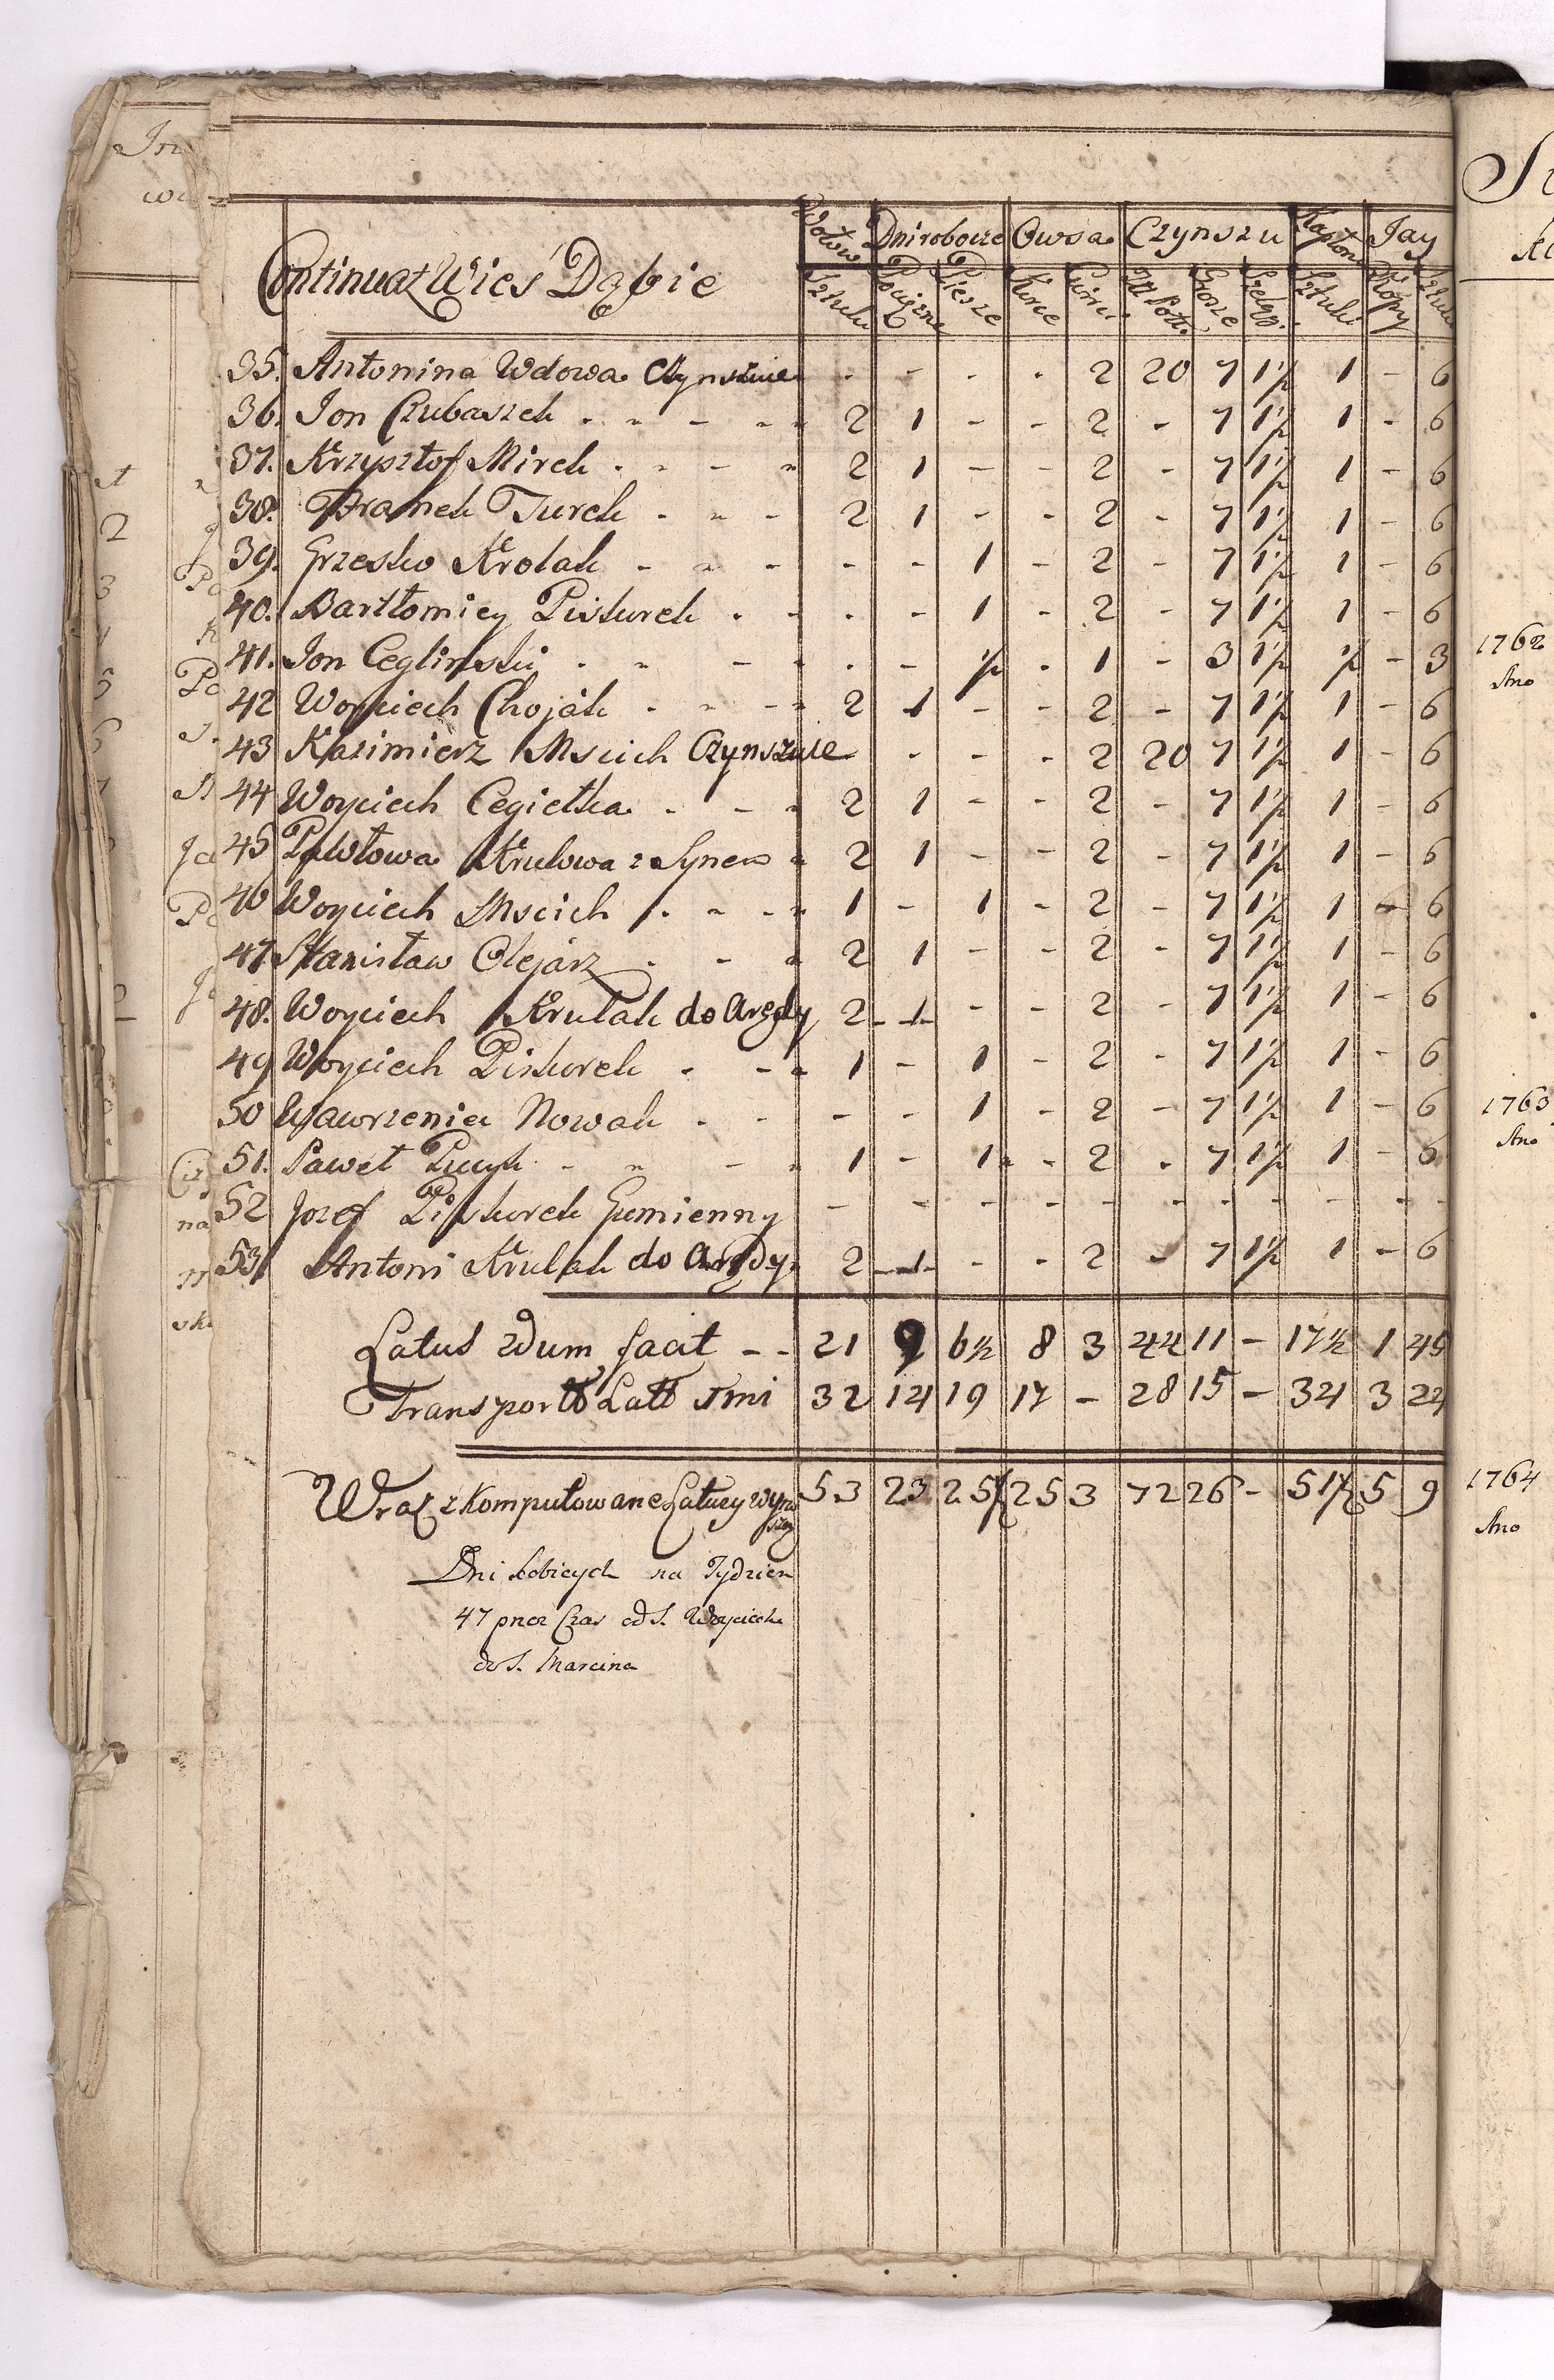 Wołow Dni robocze Owsa Czynszu Kapłon Jay
Continuat Wieś Dąbie Sztuki Pociężne Piesze Korce Cwierci Złł Polł Grosze Szelągi Sztuki Kopy Sztuki
35. Antonina Wdowa Czynszuie . - . . 2 20 7 1½ 1 - 6
36. Jon Czubaszek . - - - - 2 1 - - 2 - 7 1½ 1 - 6
37. Krzysztof Mirek . - - - 2 1 - - 2 - 7 1½ 1 - 6
38. Franek Turek - - - 2 1 - - 2 - 7 1½ 1 - 6
39. Grzesko Krolak - - - - - 1 - 2 - 7 1½ 1 - 6
40. Bartłomiey Pisturek . - . - 1 - 2 - 7 1½ 1 - 6
41. Jon Ceglinski . - - . - ½ . 1 - 3 1½ ½ - 3
42 Woyciech Choják . - - 2 1 - - 2 - 7 1½ 1 - 6
43 Kazimierz Mscich Czynszuie - - . 2 20 7 1½ 1 - 6
44 Woyciech Cegiełka . - - 2 1 - - 2 - 7 1½ 1 - 6
45 Pawłowa Krulowa z Synem 2 1 - - 2 - 7 1½ 1 - 6
46 Woyciech Mscich . - - - 1 - 1 - 2 - 7 1½ 1 - 6
47 Stanisław Olejárz . - - 2 1 - - 2 - 7 1½ 1 - 6
48. Woyciech Krulak do Arędy 2 - 1 - - - 2 - 7 1½ 1 - 6
49 Woyciech Pisturek - - - 1 - 1 - 2 - 7 1½ 1 - 6
50 Wawrzeniec Nowak . - - - 1 - 2 - 7 1½ 1 - 6
51. Paweł - - - - 1 - 1 - 2 - 7 1½ 1 - 6
52 Jozef Pisturek Gumienny - - - - - - - - - - -
53 Antoni Krulak do Arędy 2 - 1 - - - 2 - 7 1½ 1 - 6
Latus 2dum facit - - 21 9 6½ 8 3 44 11 - 17½ 1 45
Transportt Latt 1mi 32 14 19 17 - 28 15 - 34 3 24
Wraz zkomputowane Latusy wyno
szą 53 23 25½ 25 3 72 26 - 51½ 5 9
Dni robiących na Tydzien
47 przez Czas od S. Woyciecha
do S. Marcina
1762
Ano
1763
Ano
1764
Ano